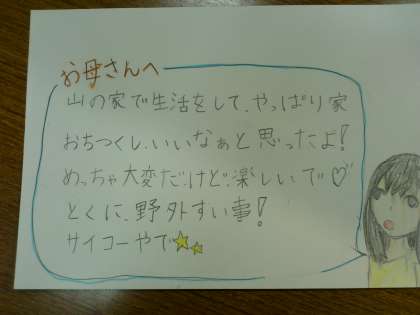 お母さんへ
山の家で生活をして、やっぱり家
おちつくし、いいなぁと思ったよ!
めっちゃ大変だけど、楽しいで♡
とくに、野外すい事!
サイコーやで⭐⭐